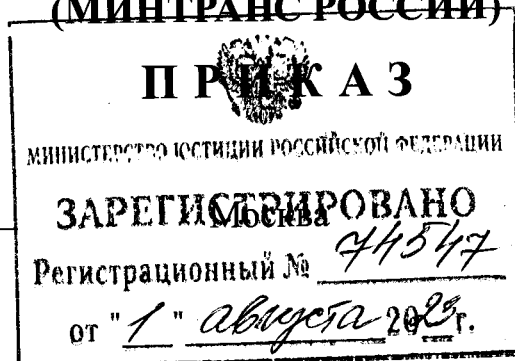 (МИНТРАНС РОССИИ)
ПРИКАЗ
МИНИСТЕРСТВО ЮСТИЦИИ РОССИЙСКОЙ ФЕДЕРАЦИИ
ЗАРЕГИСТРИРОВАНО
Москва
Регистрационный № 74547
от "1" августа 2023г.